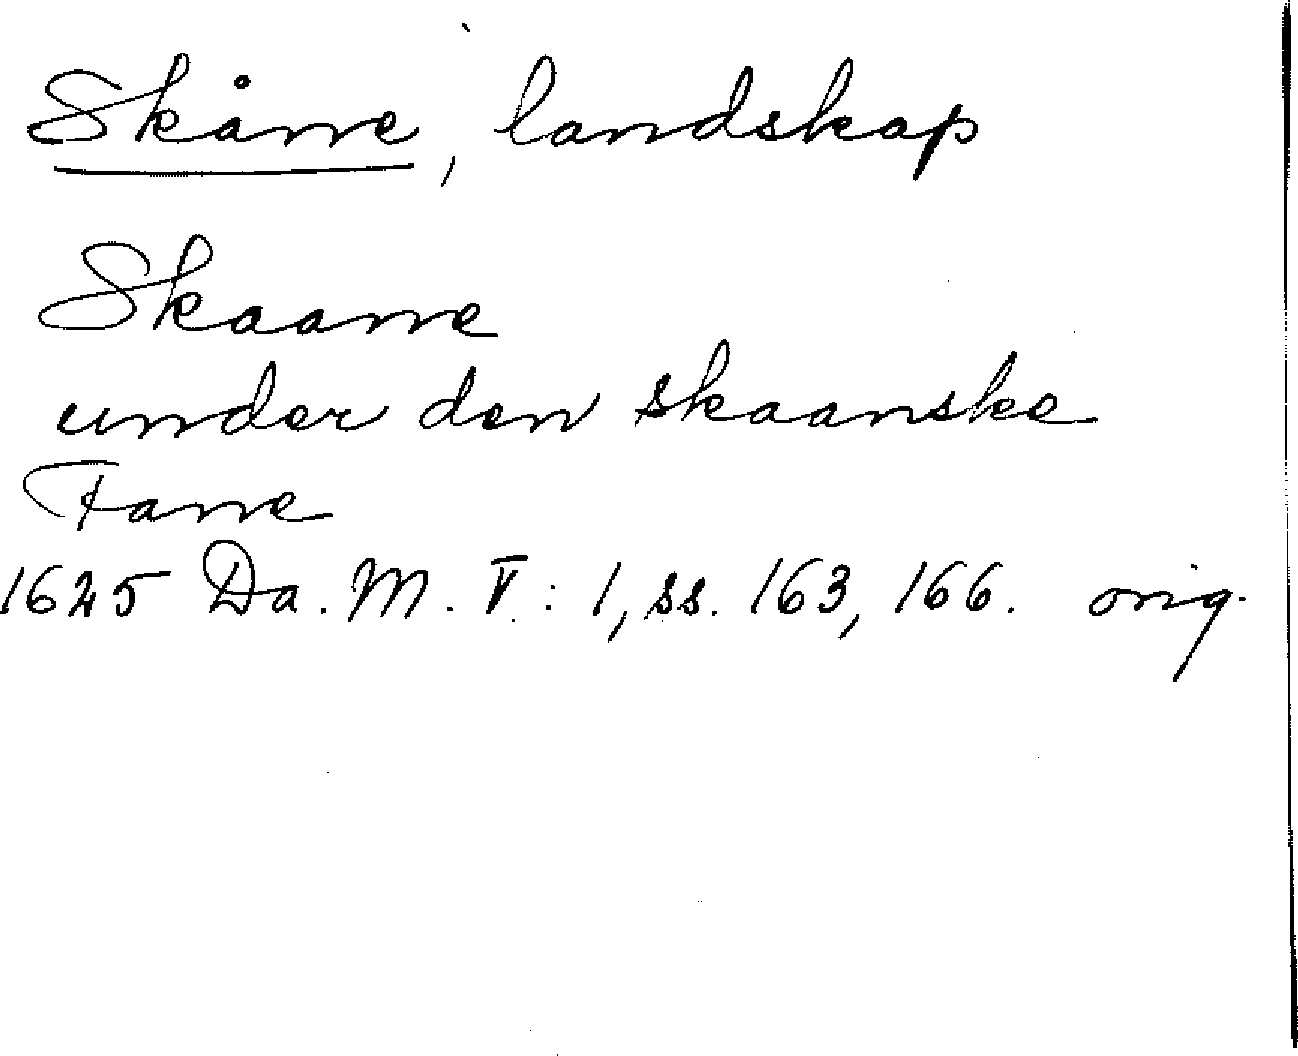 Skåne, landskap
Skaane
under den skaanske
Fane
1625 Da. M. V: 1, ss. 163, 166. orig.